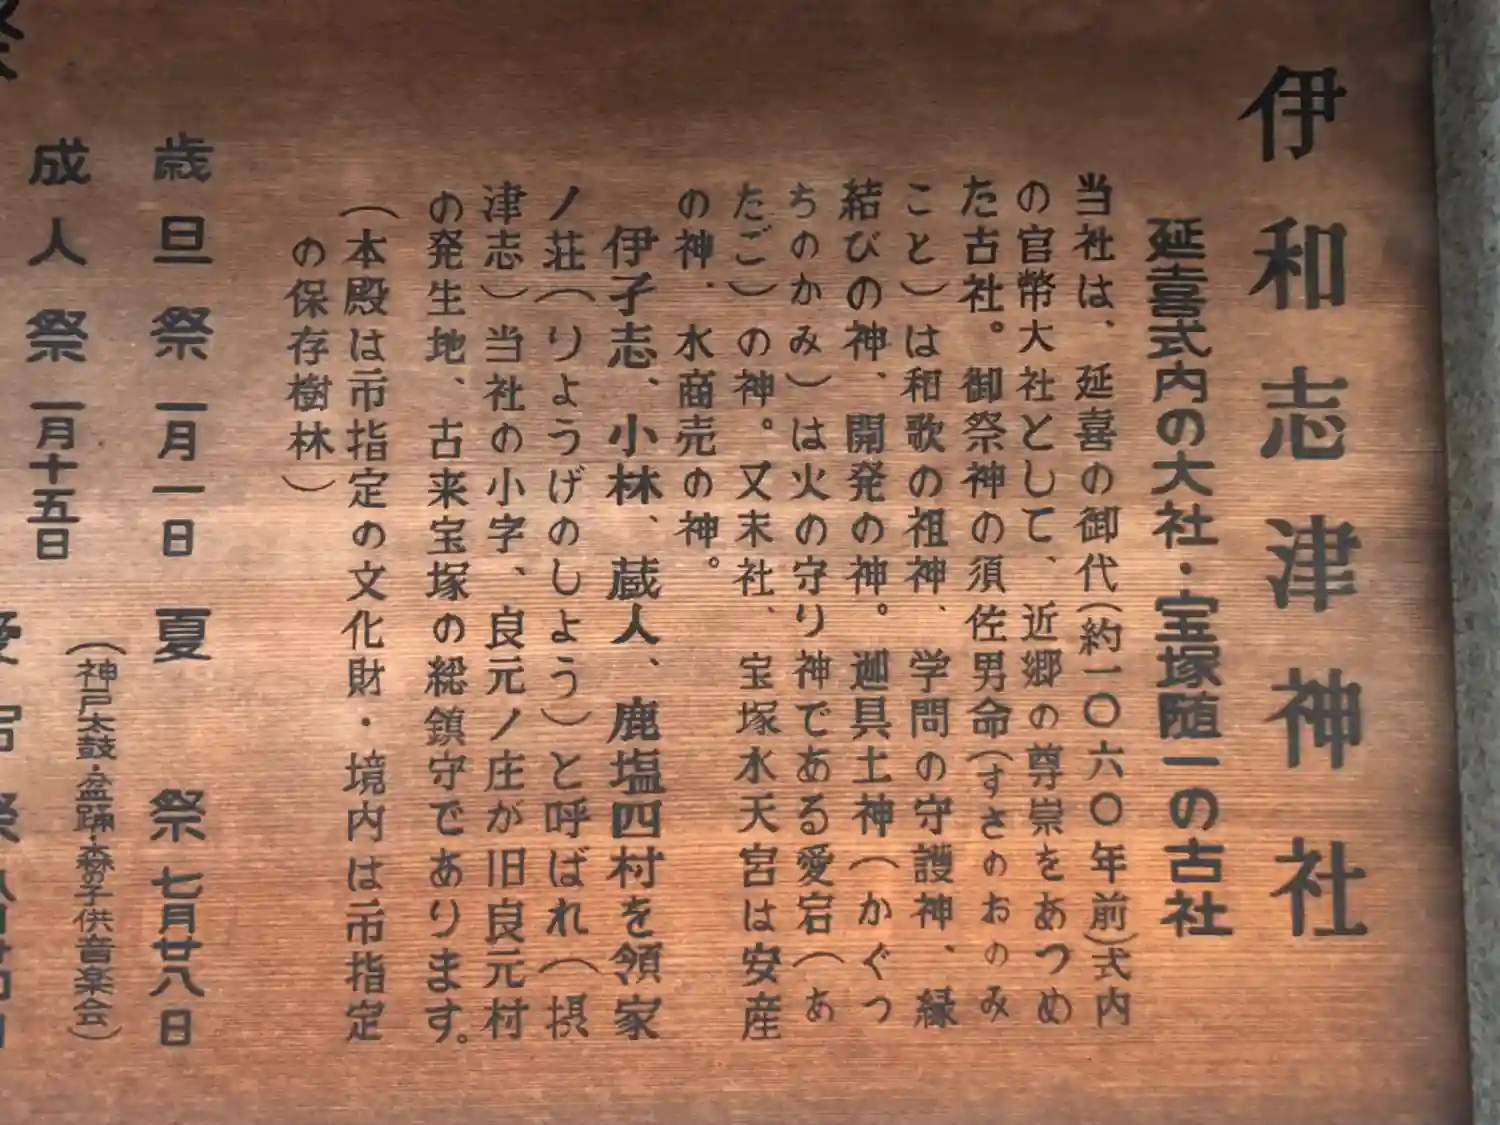 伊和志津神社
延喜式内の大社・宝塚随一の古社
当社は、延喜の御代(約一〇六〇年前)式内
の官幣大社として、近郷の尊崇をあつめ
た古社。御祭神の須佐男命(すさのおのみ
こと)は和歌の祖神、学問の守護神、縁
結びの神、開発の神。迦具土神(かぐつ
ちのかみ)は火の守り神である愛宕(あ
たご)の神。又末社、宝塚水天宮は安産
の神、水商売の神。
伊孑志、小林、蔵人、鹿塩四村を領家
ノ荘(りようげのしよう)と呼ばれ(摂
津志)当社の小字、良元ノ庄が旧良元村
の発生地、古来宝塚の総鎮守であります。
(本殿は市指定の文化財・境内は市指定
の保存樹林)
歳旦祭 一月一日 夏祭 七月廿八日
(神戸太鼓・盆踊・森の子供音楽会)
成人祭 一月十五日
祭